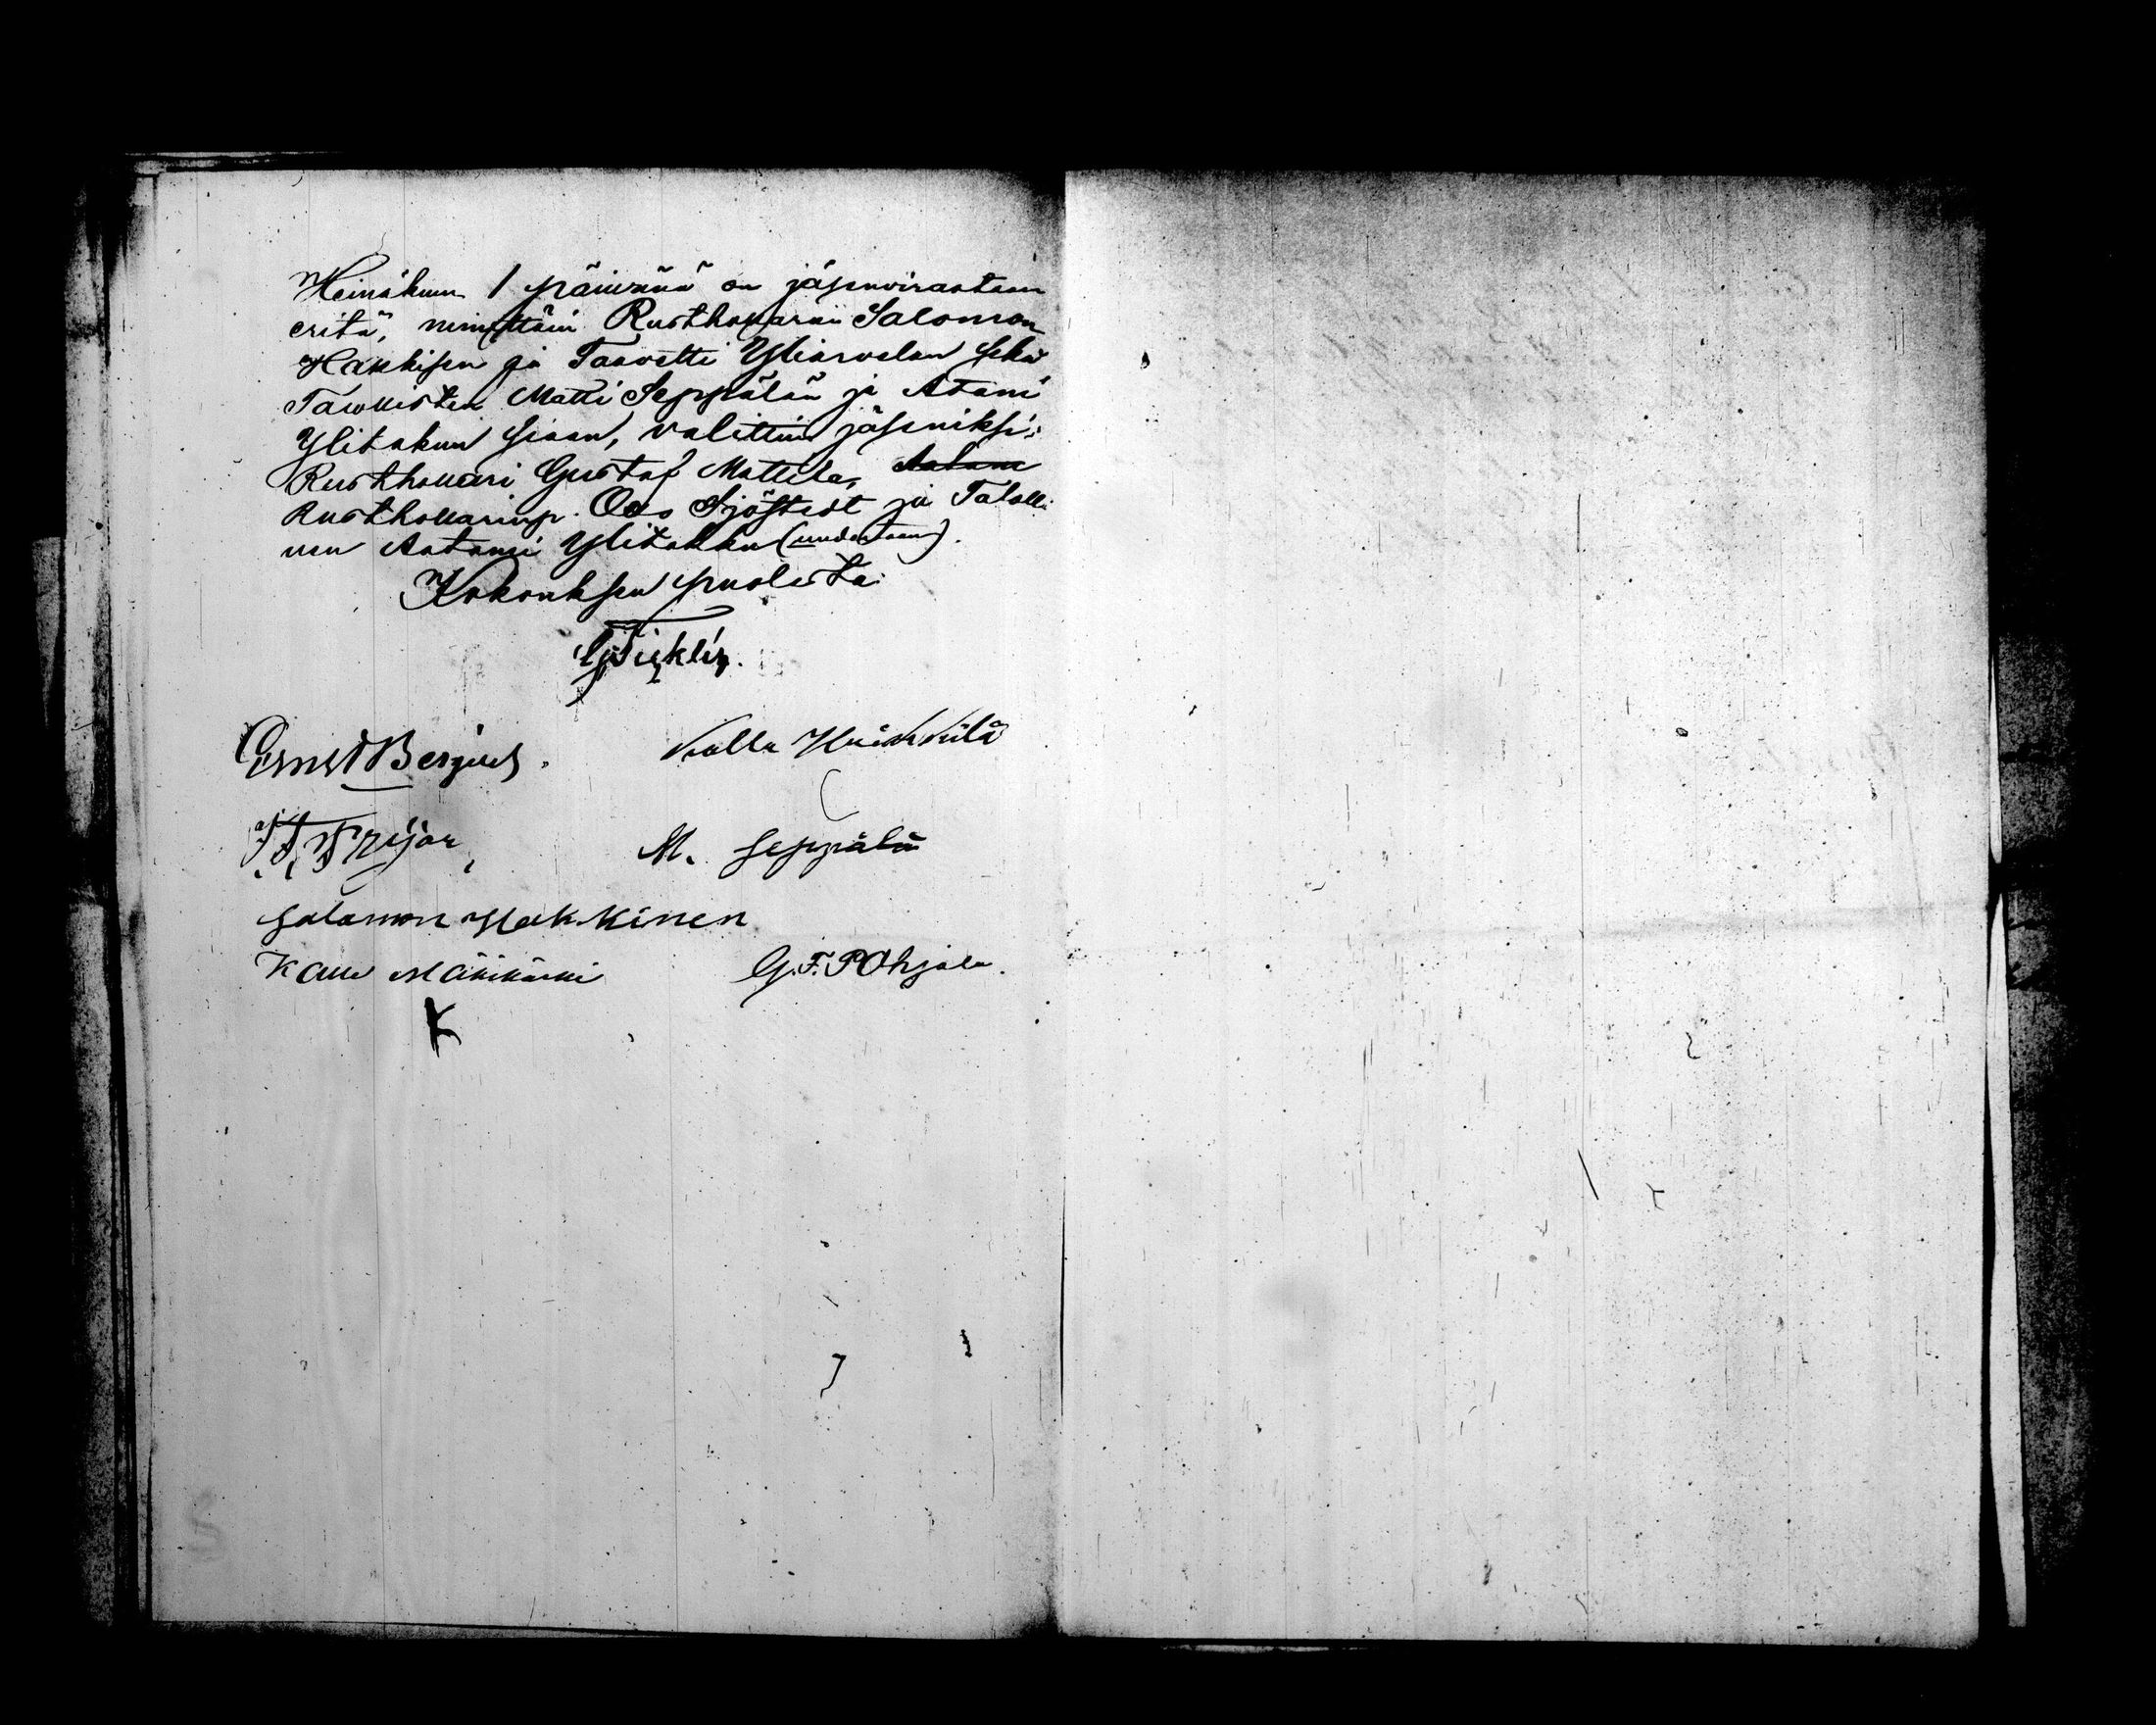 Heinäkuun 1 päivänä on jäsenvirastaan
eritä, nimittäin Rusthollarien Salomon
Hakkisen ja Taavetti Yliarvelan sekä
Talollisten Matti Seppälän ja Atami
Ylitakun siaan, valittiin jäseniksi:
Rusthollari Gustaf Mattila, Aatami
Rusthollarinp. Oas Sjöstedt ja Talolli-
nen Aatami Ylitakku (uudestaan).
Kokouksen puolesta:
Ernst Bergius. Kalle Heikkilä
M. Seppälä
Salamon Hakkinen
Kalle Mäkikärki G.F. Pohjala.